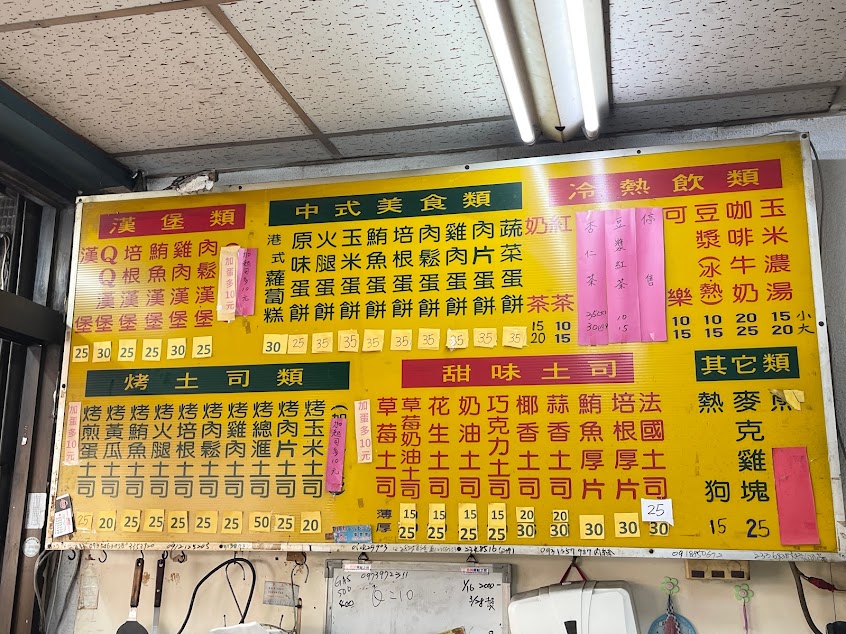 漢堡類
漢堡 25
Q Q堡 30
培根漢堡 25
鮪魚漢堡 25
雞肉漢堡 30
肉鬆漢堡 25
加蛋多10元
加起司多10元
中式美食類
港式蘿蔔糕 30
原味蛋餅 25
火腿蛋餅 35
玉米蛋餅 35
鮪魚蛋餅 35
培根蛋餅 35
肉鬆蛋餅 35
雞肉蛋餅 35
肉片蛋餅 35
蔬菜蛋餅 35
冷熱飲類
奶茶 15 20
紅茶 10 15
杏仁茶
豆漿紅茶 10 15
停售
可樂
豆漿(冰熱) 10 15
咖啡牛奶 20 25
玉米濃湯 15 20
小
大
烤土司類
加蛋多10元
烤煎蛋土司 25
烤黃瓜土司 20
烤鮪魚土司 25
烤火腿土司 25
烤培根土司 25
烤肉鬆土司 25
烤雞肉土司 25
烤總滙土司 50
烤肉片土司 25
烤玉米土司 20
加起司多10元
甜味土司
加蛋多10元
薄厚
草莓土司 15 20
草莓奶油土司 15 25
花生土司 15 25
奶油土司 15 25
巧克力土司 15 25
椰香土司 20 30
蒜香土司 20 30
鮪魚厚片 30
培根厚片 30
法國土司 30
25
其它類
熱狗 15
麥克雞塊 25
GAS 0973972311
500
400
Q=10